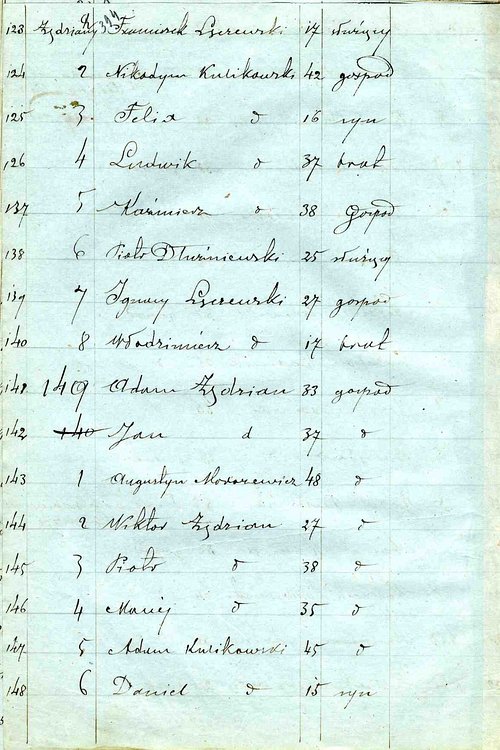 123 Zędziany Franciszek Lszewski 17 służący
124 2 Nikodym Kulikowski 42 gospod
125 3 Felix d 16 syn
126 4 Ludwik d 37 brat
137 5 Kaźmierz d 38 gospod
138 6 Piotr Dłuźniewski 25 służący
139 7 Ignacy 27 gospod
140 8 Włodzimierz d 17 brat
141 149 Adam Zędzian 33 gospod
142 140 Jan d 37 d
143 1 Augustyn 48 d
144 2 Wiktor Zędzian 27 d
145 3 Piotr d 38 d
146 4 Maciej d 35 d
147 5 Adam Kulikowski 45 d
148 6 Daniel d 15 syn